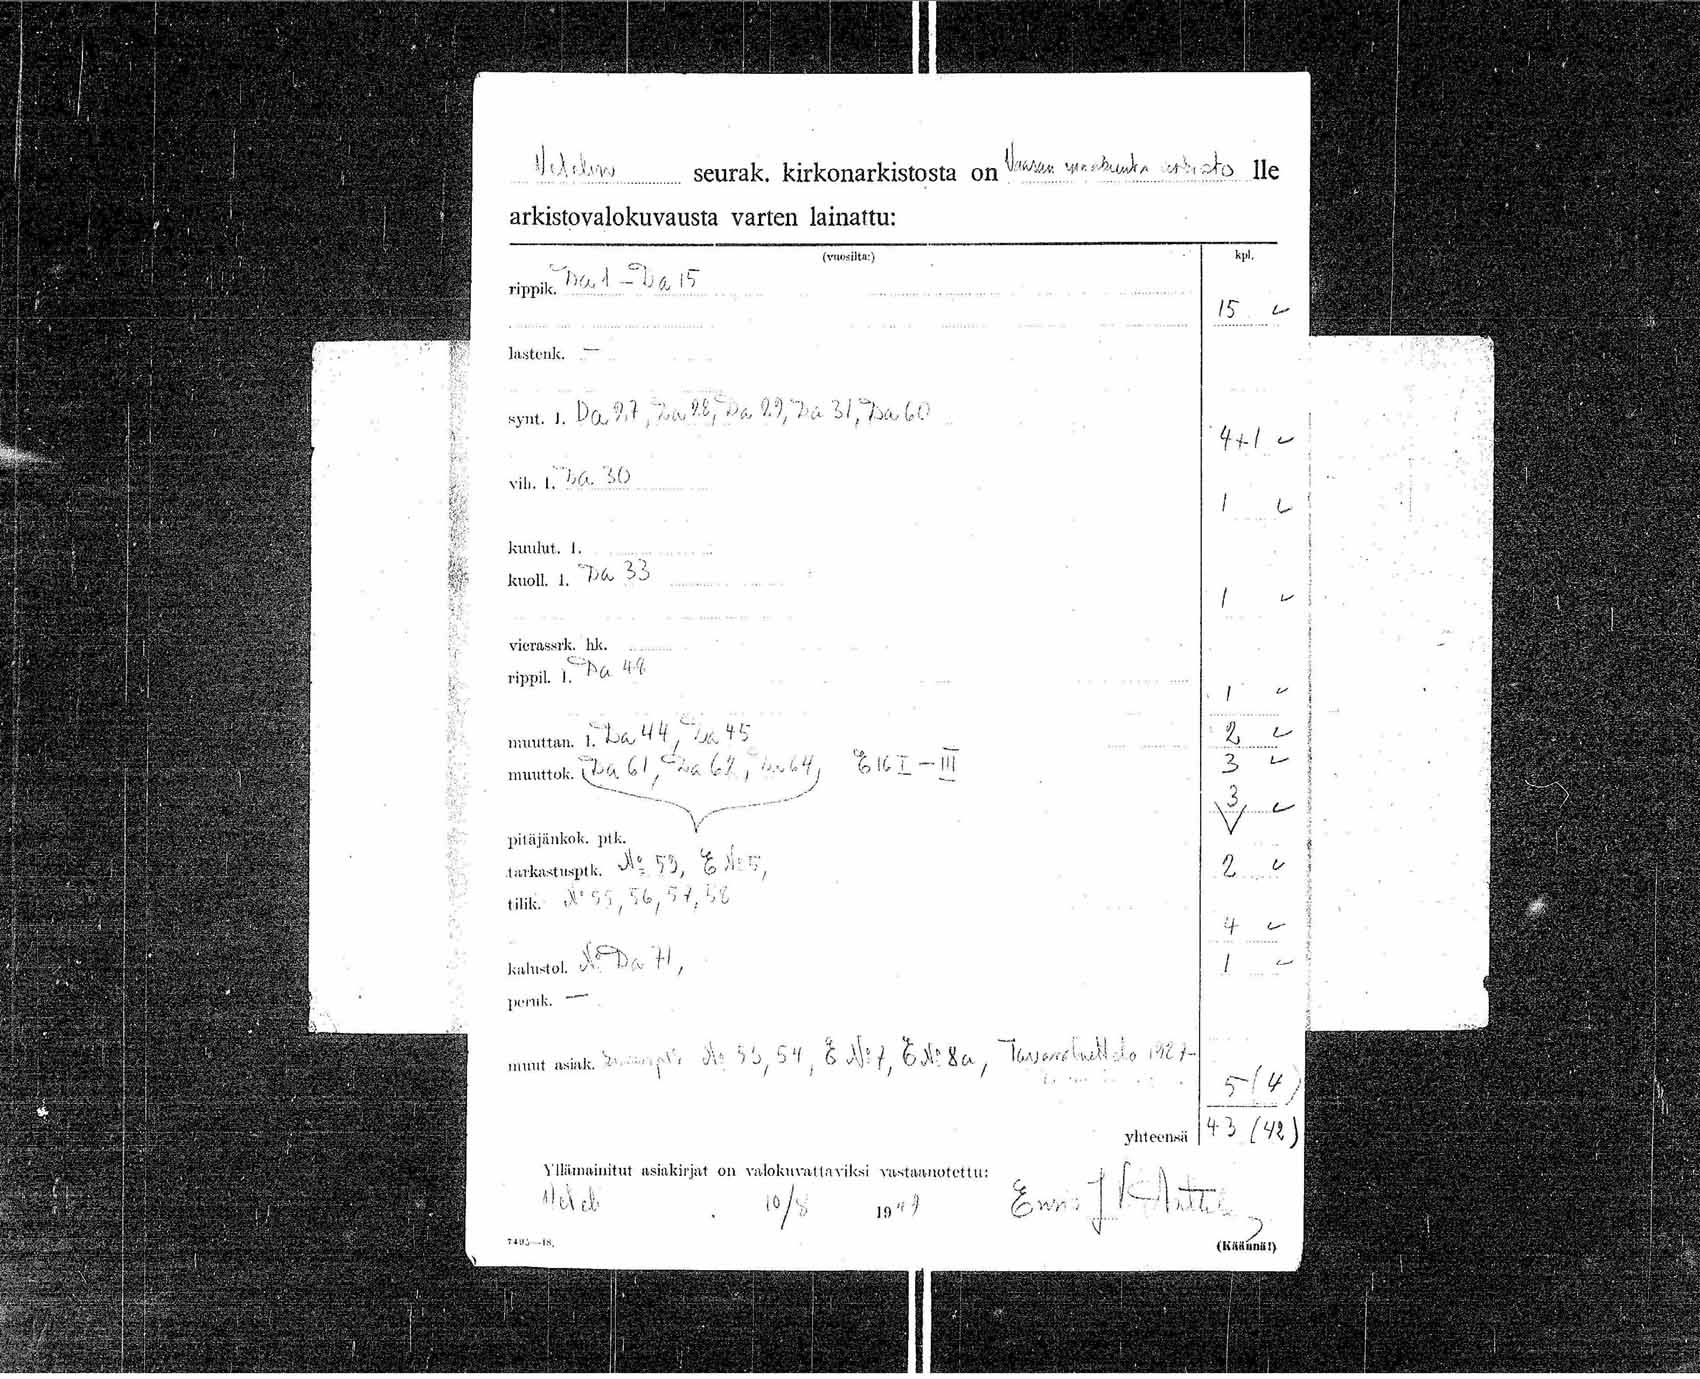 Vetelin seurak. kirkonarkistosta on Vaasan maakunta arkisto lle
arkistovalokuvausta varten lainattu:
(vuosilta:) kpl.
rippik. Da 1 – Da 15
15
lastenk. —
synt. l. Da 27, Da 28, Da 29, Da 31, Da 60
4+1
vih. l. Da 30
1
kuulut. l.
kuoll. l. Da 33
1
vierassrk. hk.
rippil. l. Da 48
1
muuttan. l. Da 44, Da 45 2
muuttok. Da 61, Da 62, Da 64, E 16 I – III 3
3
pitäjänkok. ptk.
tarkastusptk. No 59, E No 5, 2
tilik. No 55, 56, 57, 58
4
kalustol. No Da 71, 1
peruk. —
muut asiak. No 53, 54, E No 7, E No 8a, Tavaraluettelo 1927-
5 (4)
yhteensä 43 (42)
Yllämainitut asiakirjat on valokuvattaviksi vastaanotettu:
Veteli 10/8 19
7495—48.
(Käännä!)